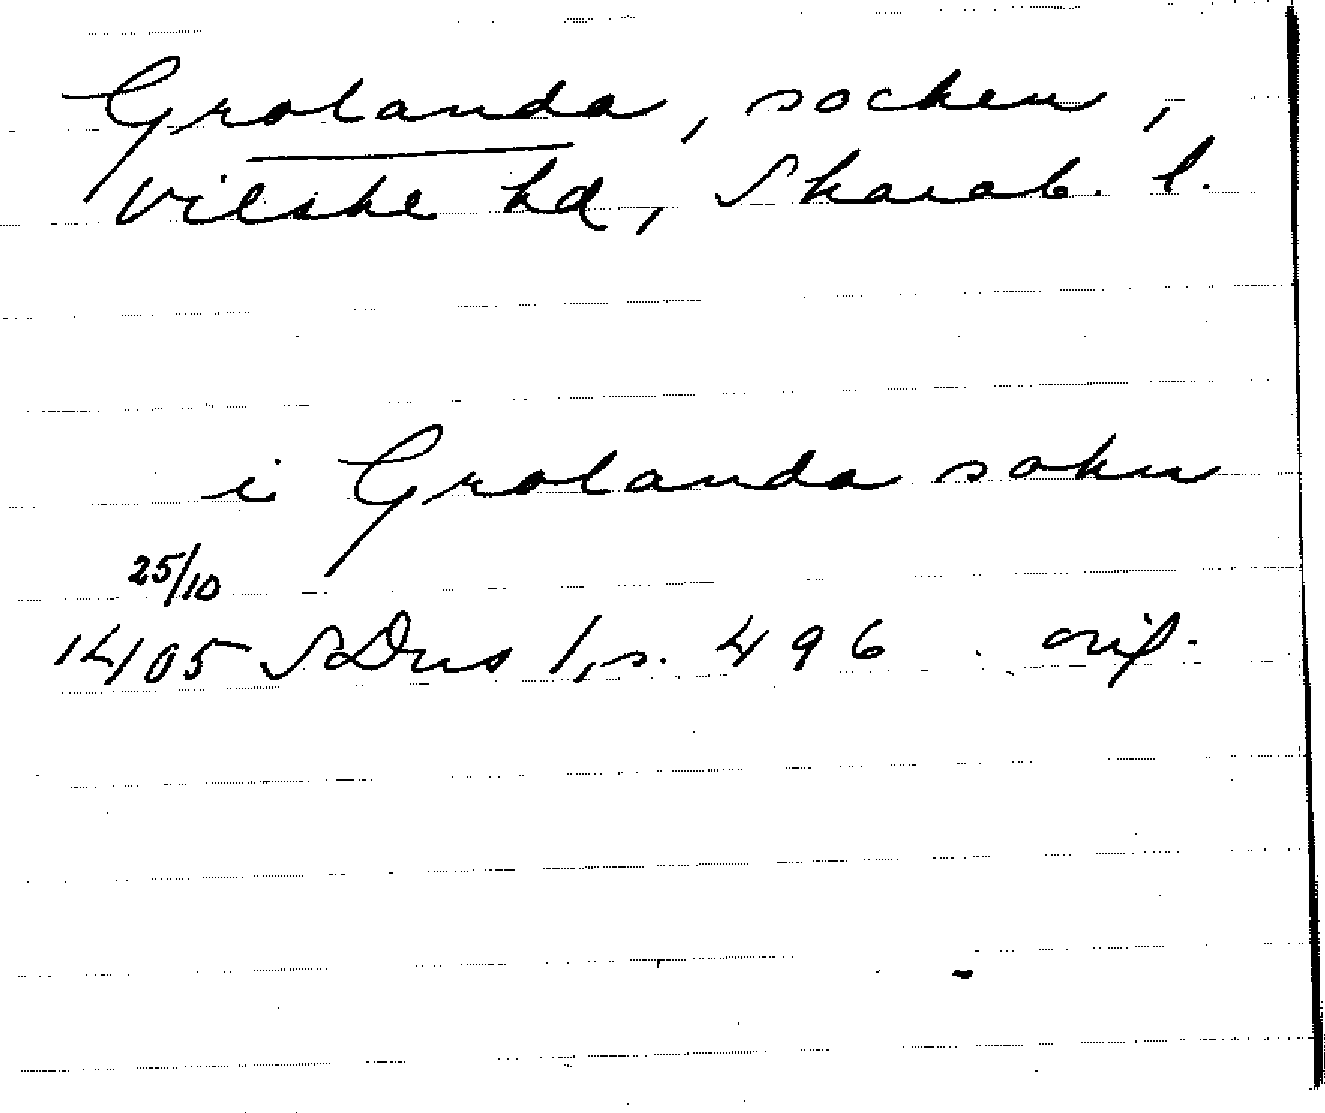 Grolanda, socken,
Vilske hd, Skarab. l.
i Grolanda sokn
25/10
1405 SDns 1, s. 496 orig.